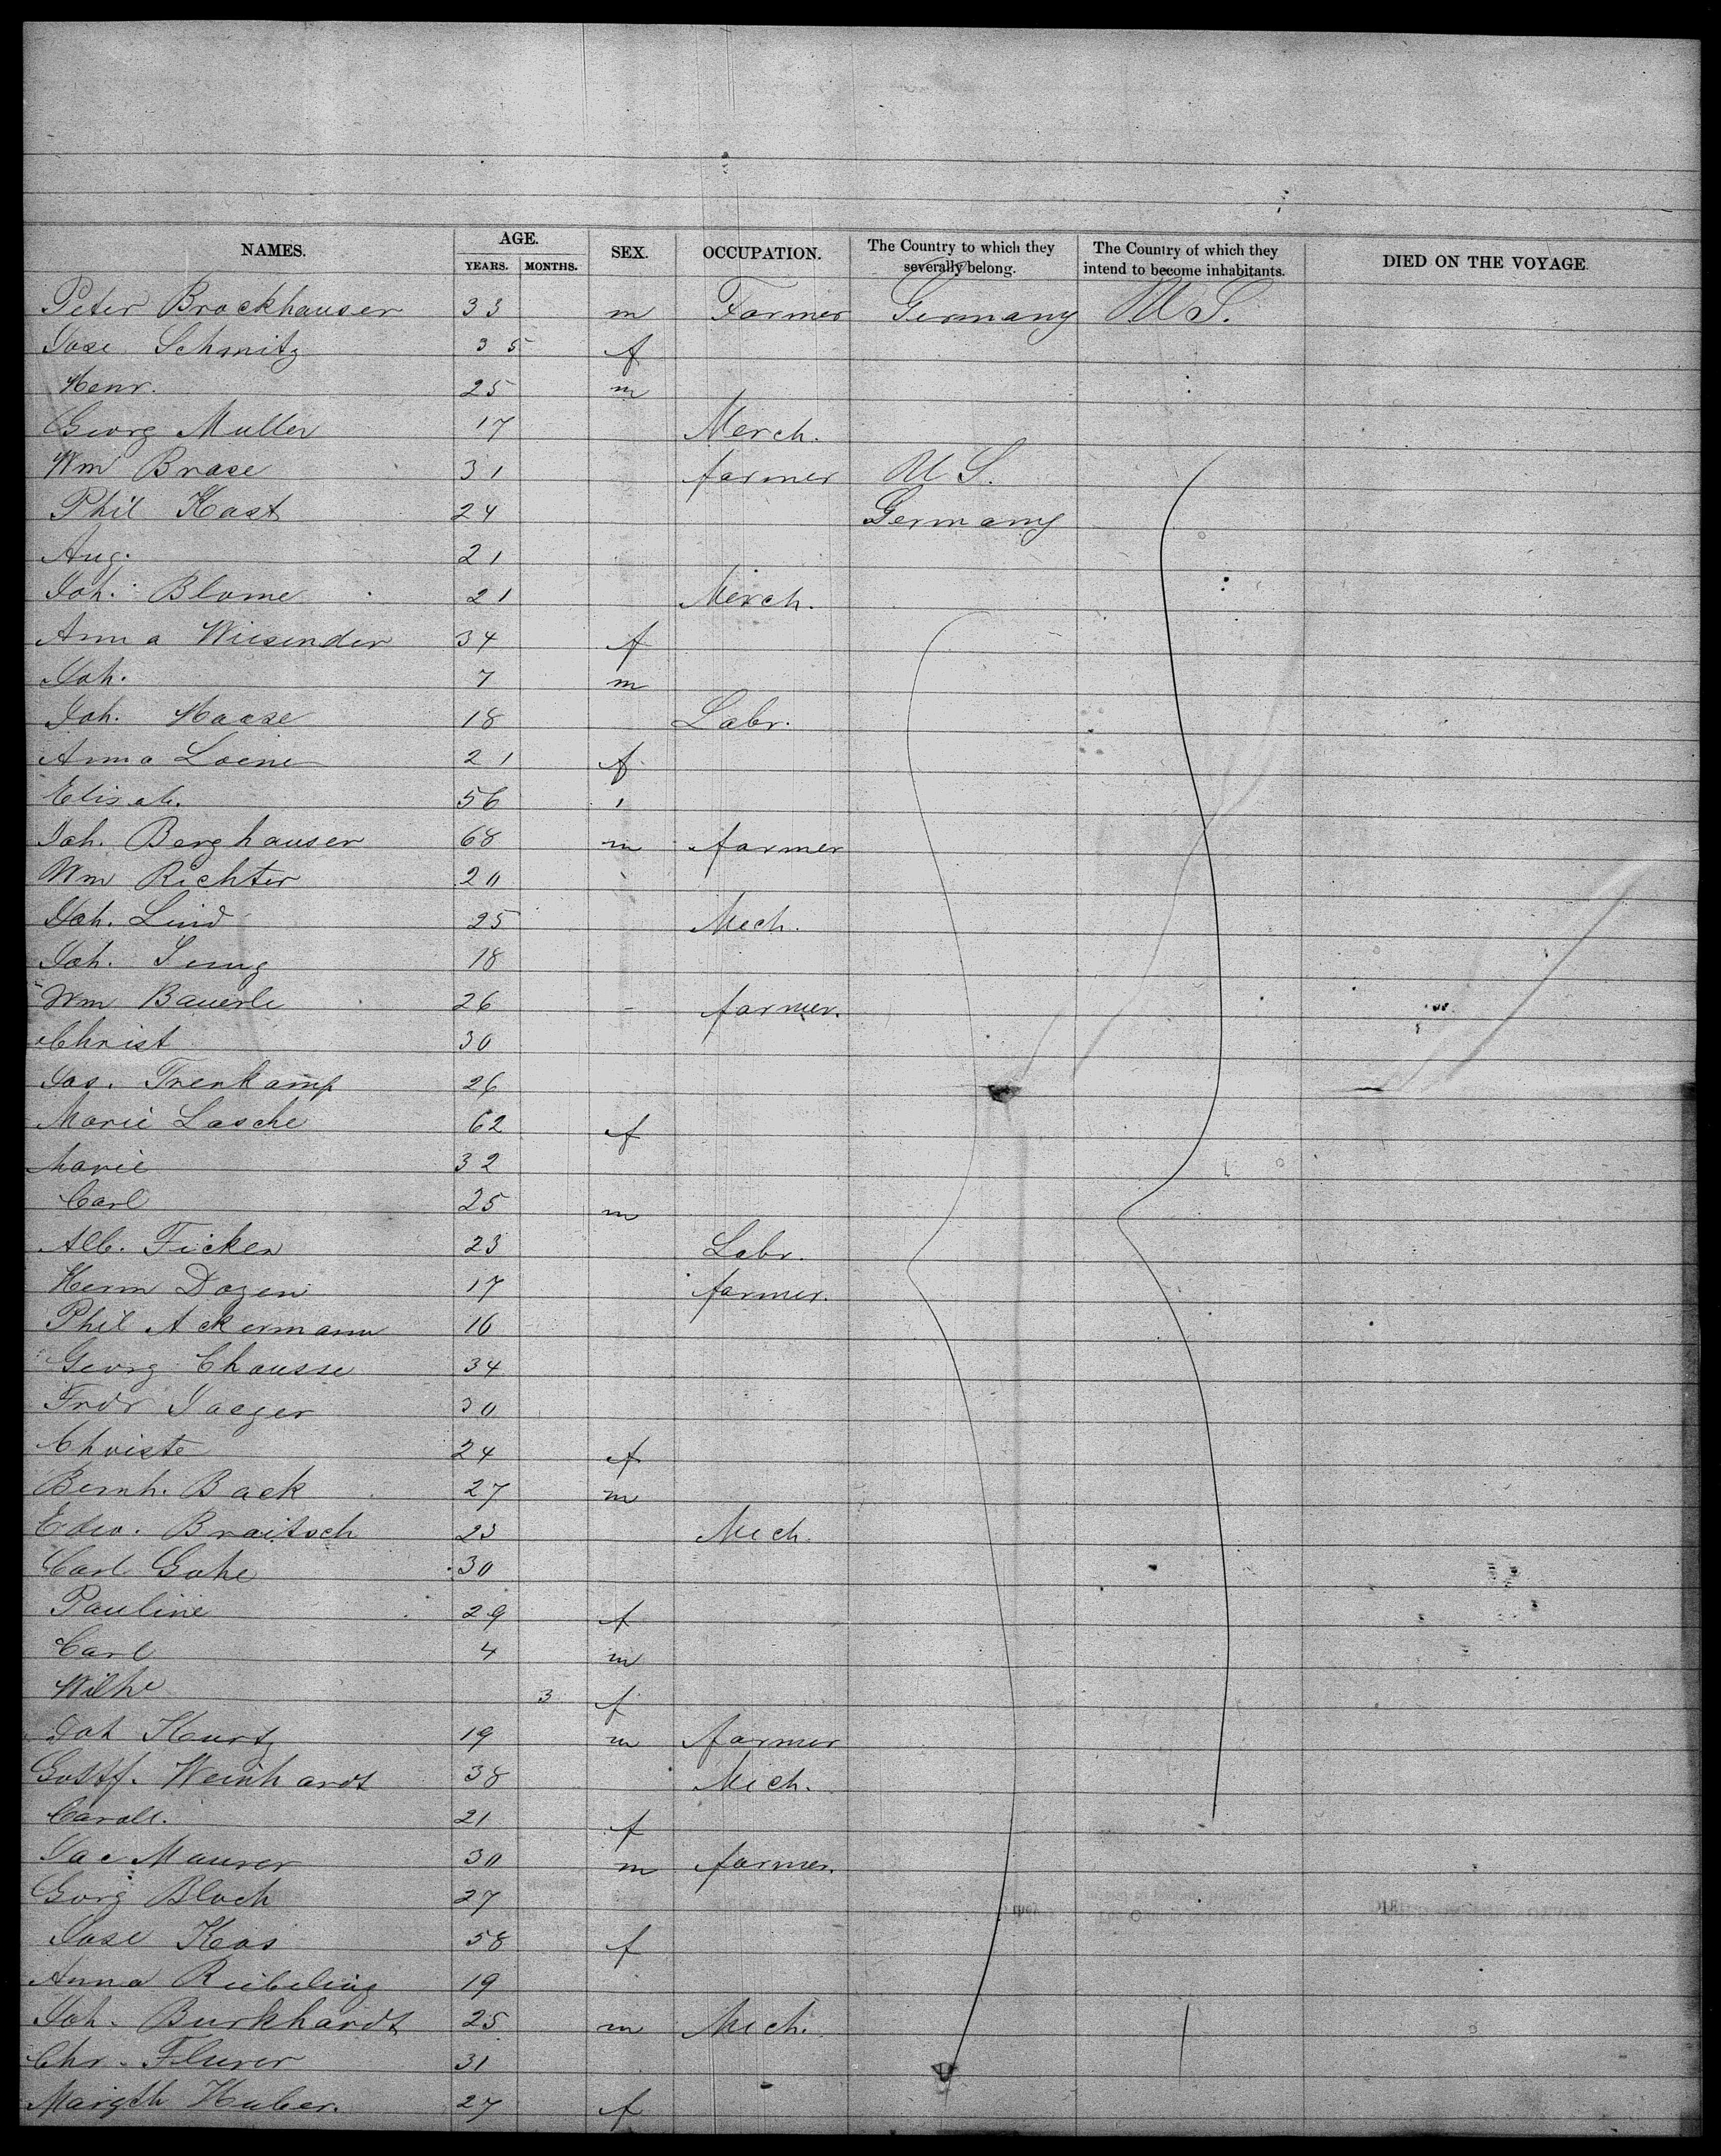 NAMES. AGE. SEX. OCCUPATION. The Country to which they severally belong. The Country of which they intend to become inhabitants. DIED ON THE VOYAGE
YEARS. MONTHS.
Peter Brockhauser 33 m Farmer Germany U S.
Jose Schmitz 35 f
Henr. 25 m
Georg Muller 17 Merch.
Wm Brase 31 farmer U S.
Phil Kast 24 Germany
Aug. 21
Joh. Blome 21 Merch.
Anna Wiesender 34 f
Joh. 7 m
Joh. Haase 18 Labr.
Anna Loene 21 f
Elisab. 56
Joh. Berghauser 68 m farmer
Wm Richter 20
Joh. Lind 25 Mech.
Joh. 18
Wm Bauerle 26 farmer.
Christ 30
Jos. Trenkamp 26
Marie Lasche 62 f
Marie 32
Carl 25 m
Alb. Ficken 23 Labr.
Herm Dozen 17 farmer.
Phil Ackermann 16
Georg Chausse 34
Fredr Jaeger 30
Christe 24 f
Bernh. Back 27 m
Edw. Braitsch 23 Mech.
Carl Gohe 30
Pauline 29 f
Carl 4 m
Wilhe 3 f
Joh Kurtz 19 m farmer
Gustf. Weinhardt 38 Mech.
Caroll. 21 f
Jac Maurer 30 m farmer.
Georg Bloch 27
Jose Keas 58 f
Anna Riebeling 19
Joh. Burkhardt 25 m Mech.
Chr. Flurer 31
Margth Huber. 27 f